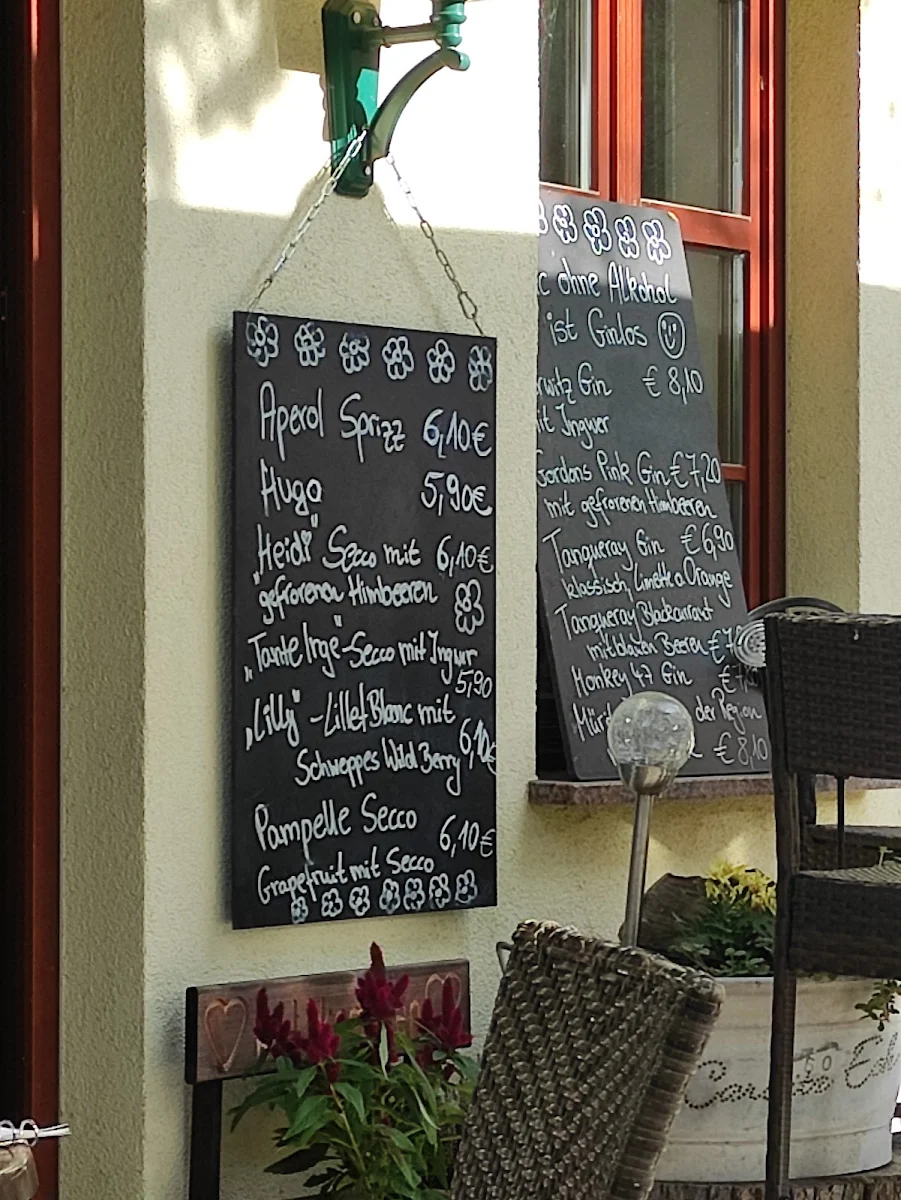 Aperol Sprizz 6,10€
Hugo 5,90€
"Heidi" Secco mit 6,10€
gefrorenen Himbeeren
"Tante Inge"-Secco mit Ingwer
5,90
"Lilly" - Lillet Blanc mit
Schweppes Wild Berry 6,10€
Pampelle Secco
6,10€
Grapefruit mit Secco
ohne Alkohol
ist Ginlos
Gin € 8,10
Ingwer
Gordons Pink Gin € 7,20
mit gefrorenen Himbeeren
Tanqueray Gin € 6,90
klassisch, Limette o. Orange
Tanqueray Blackcurrant
mit blauen Beeren €
Monkey 47 Gin €
der Region
€ 8,10